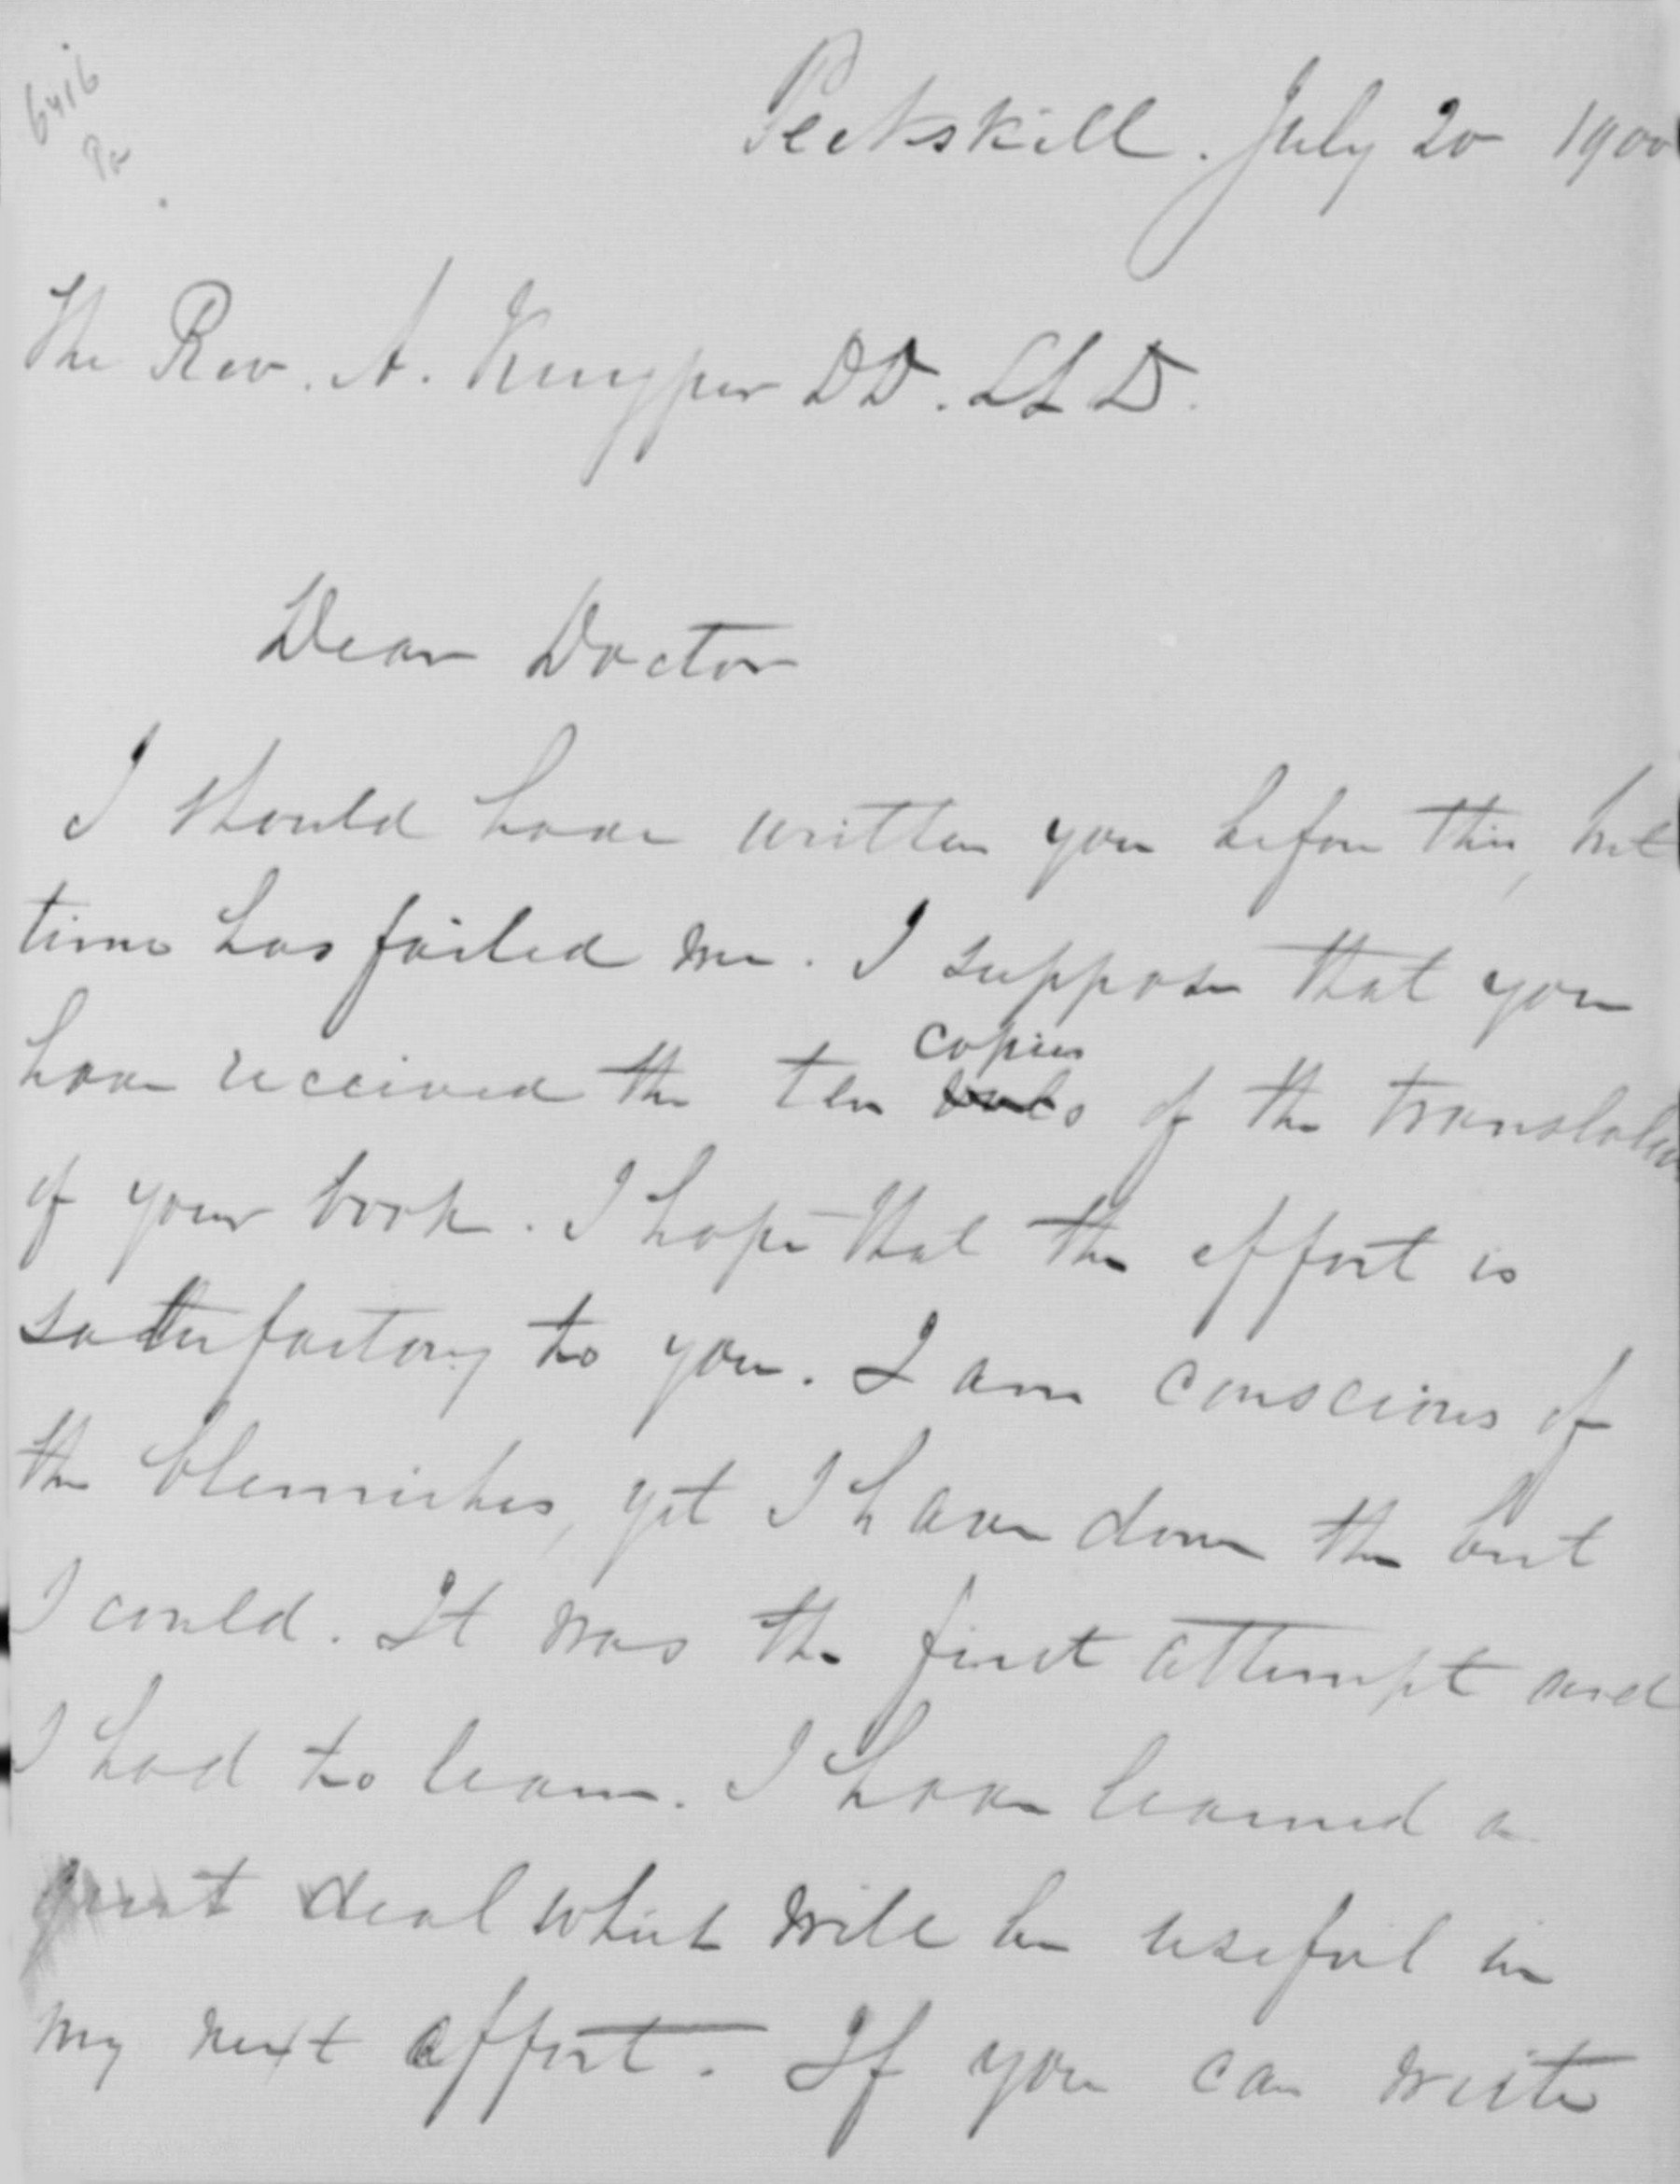 6416
Peekskill. July 20 1900
The Rev. A. Kuyper DD. LLD.
Dear Doctor
I should have written you before this, but
time has failed me. I suppose that you
copies
have received the ten of the translation
of your book. I hope that the effort is
satisfactory to you. I am conscious of
the blemishes, yet I have done the best
I could. It was the first attempt and
I had to learn. I have learned a
great deal which will be useful in
my next effort. If you can write